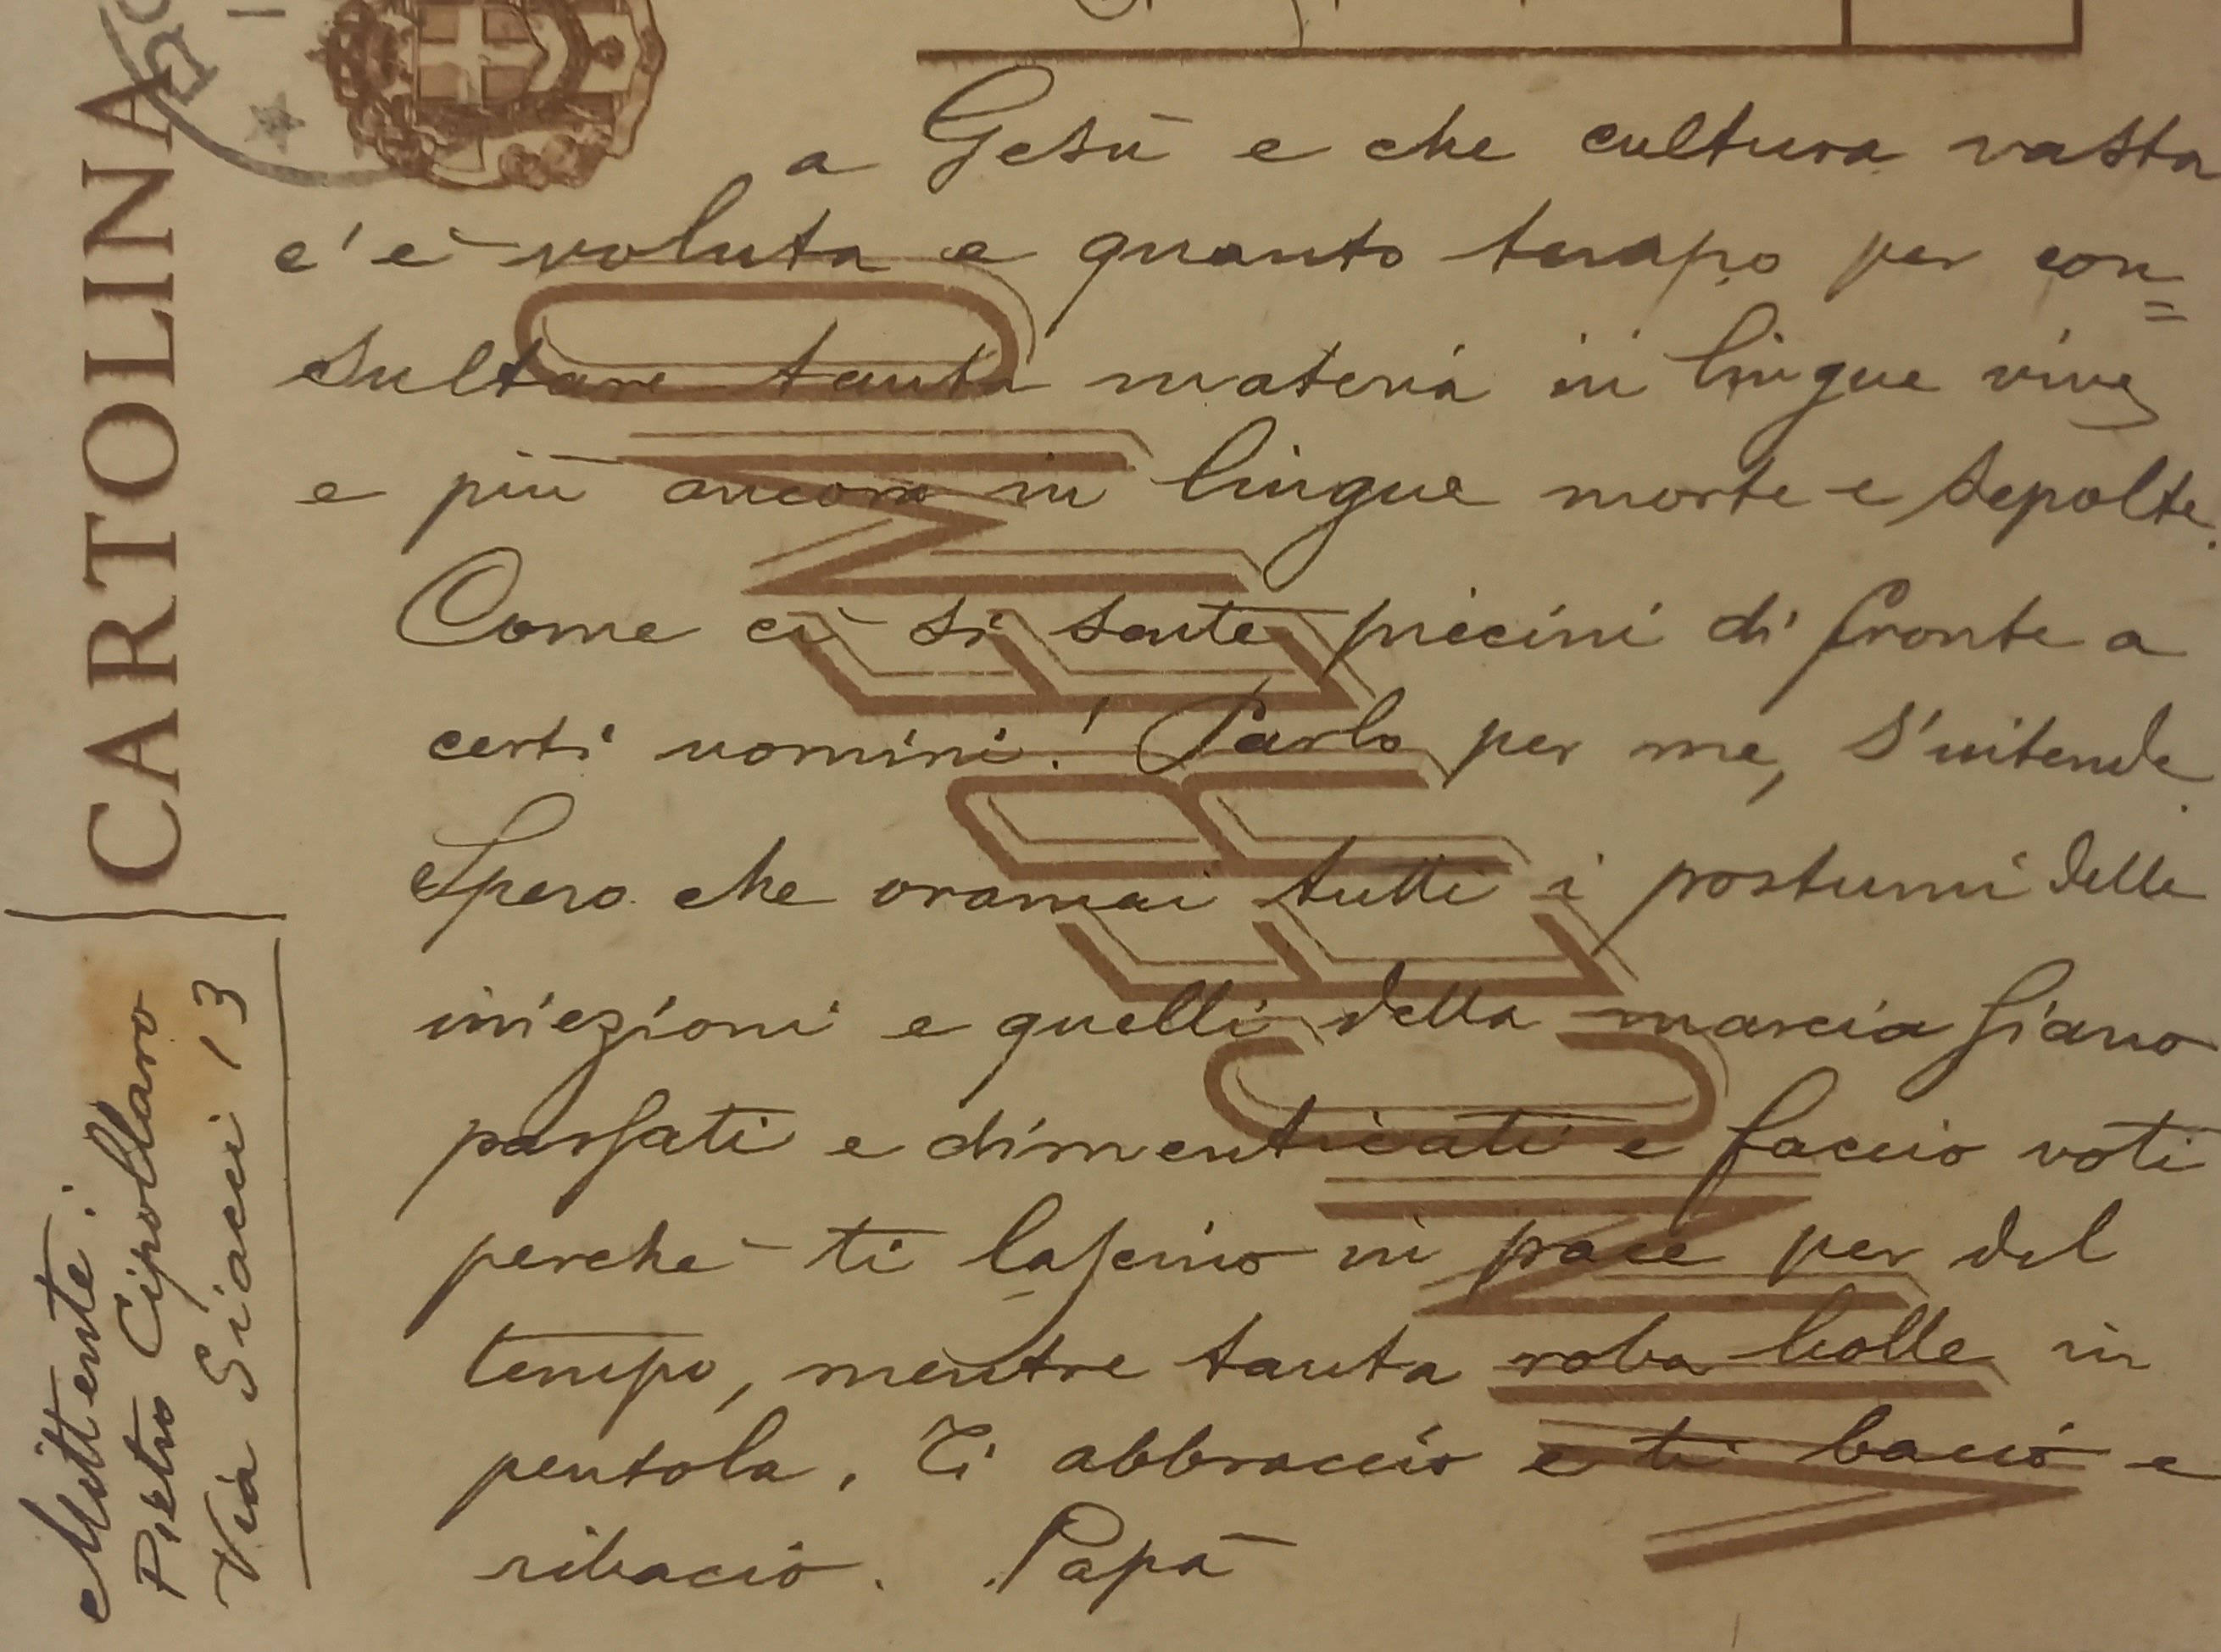 CARTOLINA
a Gesù e che cultura vasta
c'è voluta e quanto tempo per con=
sultare tanta materia in lingue vive
e più ancora in lingue morte e sepolte.
Come ci si sente piccini di fronte a
certi uomini! Parlo per me, s'intende.
Spero che oramai tutti i postumi delle
iniezioni e quelli della marcia siano
passati e dimenticati e faccio voti
perchè ti lascino in pace per del
tempo, mentre tanta roba bolle in
pentola. Ti abbraccio e ti bacio e
ribacio. Papà
Mittente:
Pietro Cipollaro
Via Giacci 13
VINCEREMO